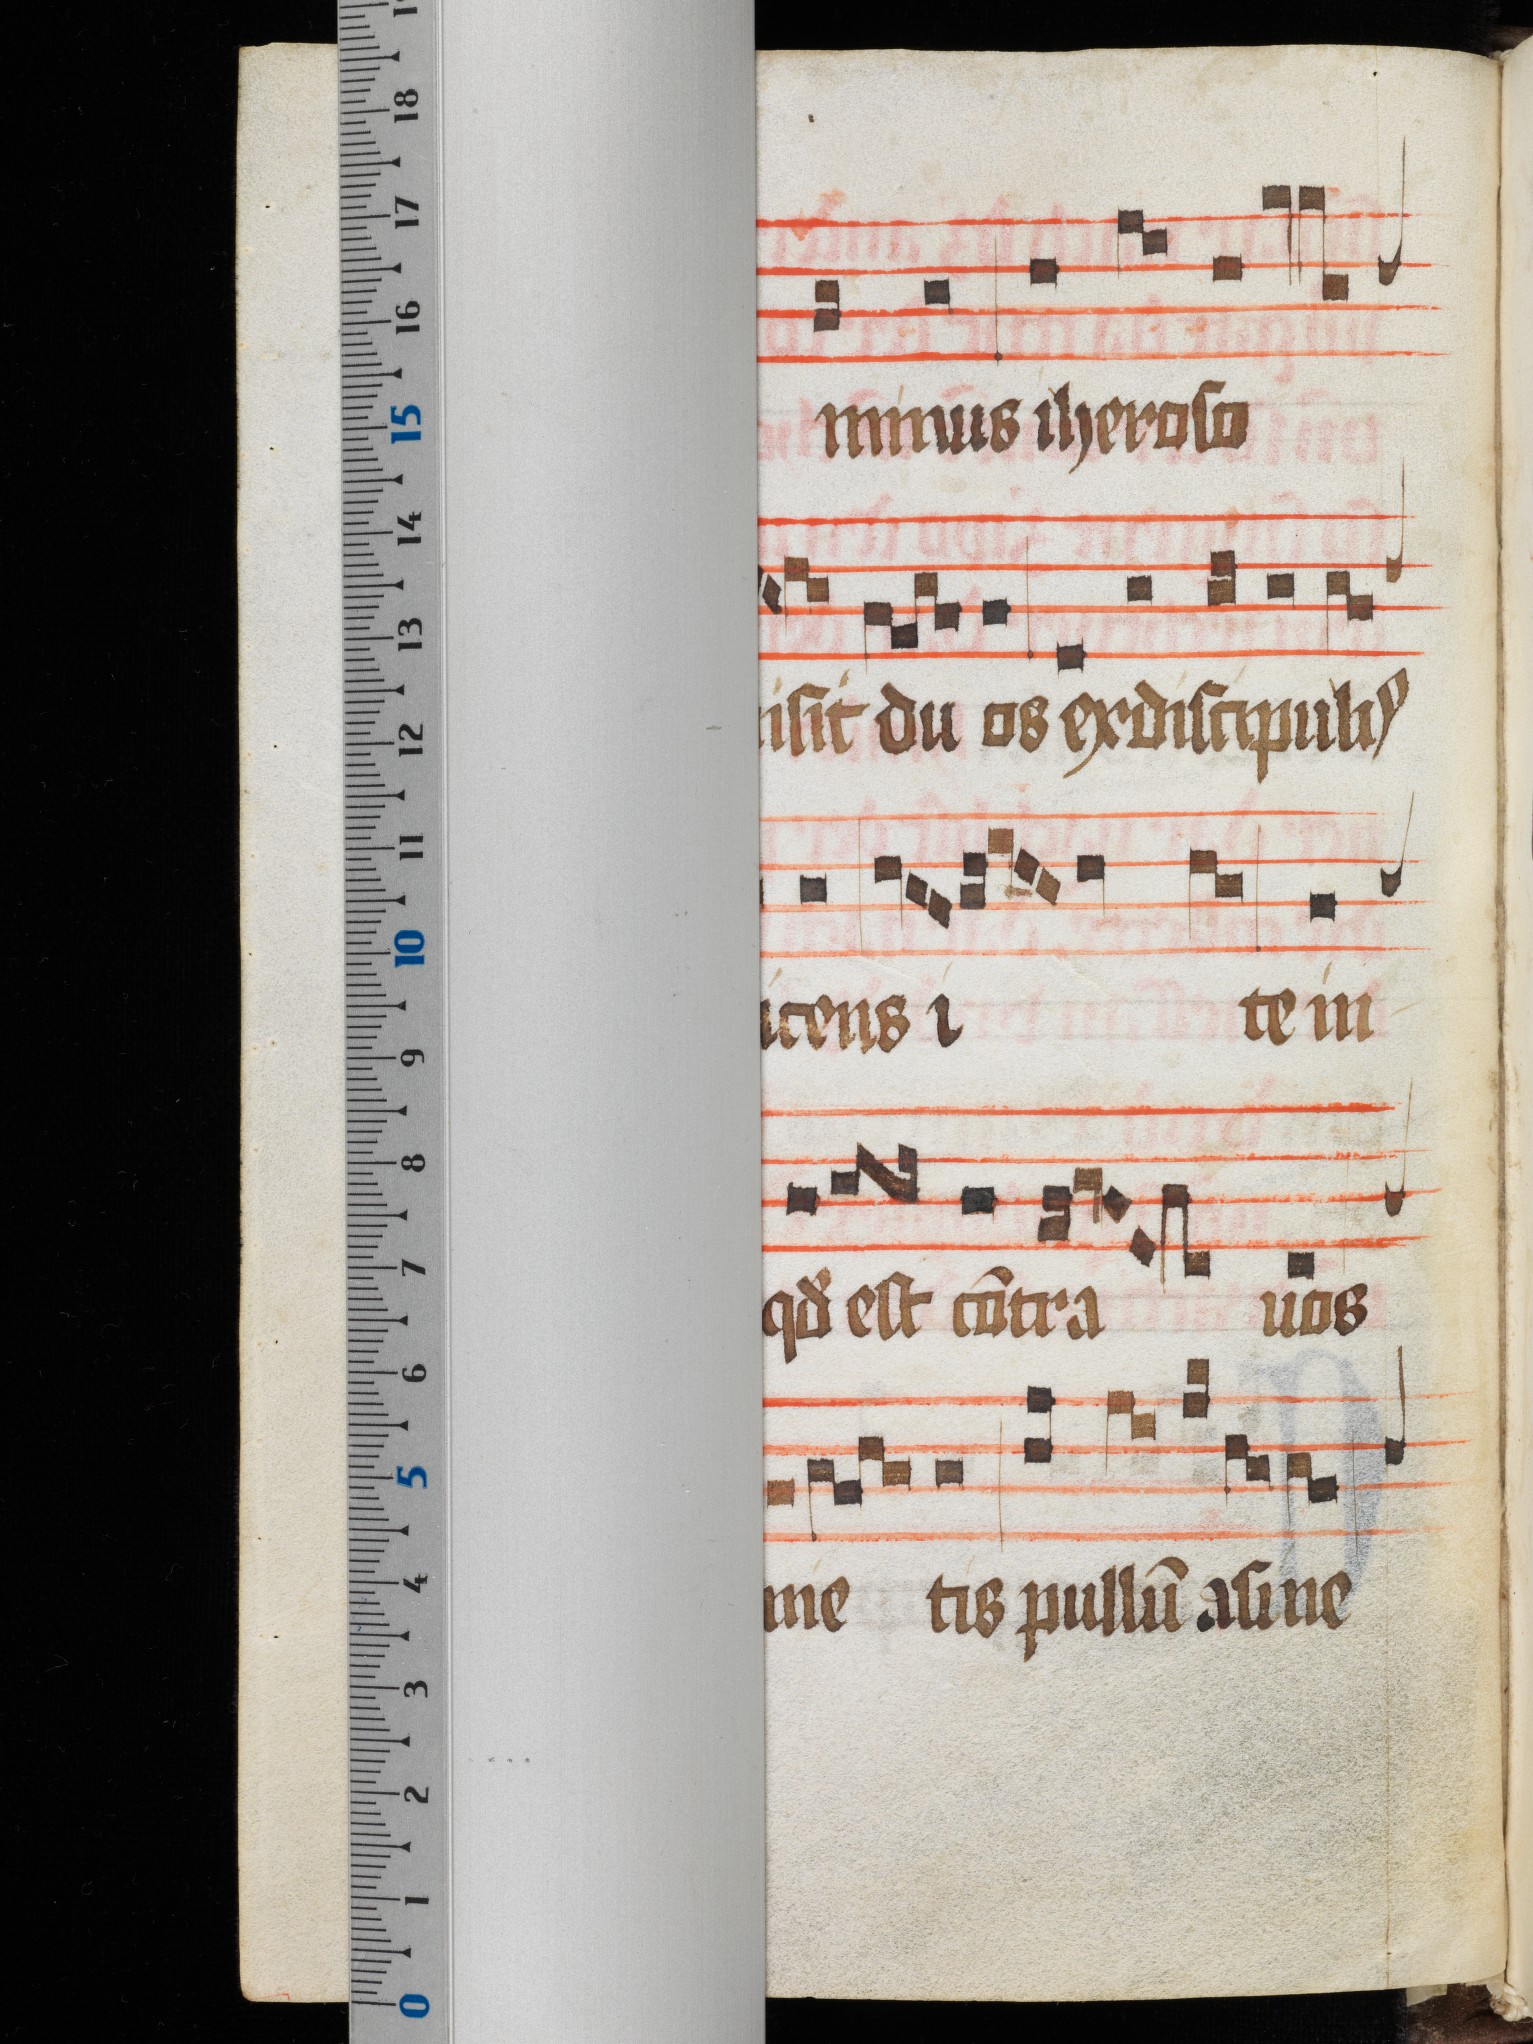 minus iheroso
isit du os exdiscipulis
icens i te in
qď est cōtra uos
me tis pullū asine
18
17
16
15
14
13
12
11
10
9
8
7
6
5
4
3
2
1
0